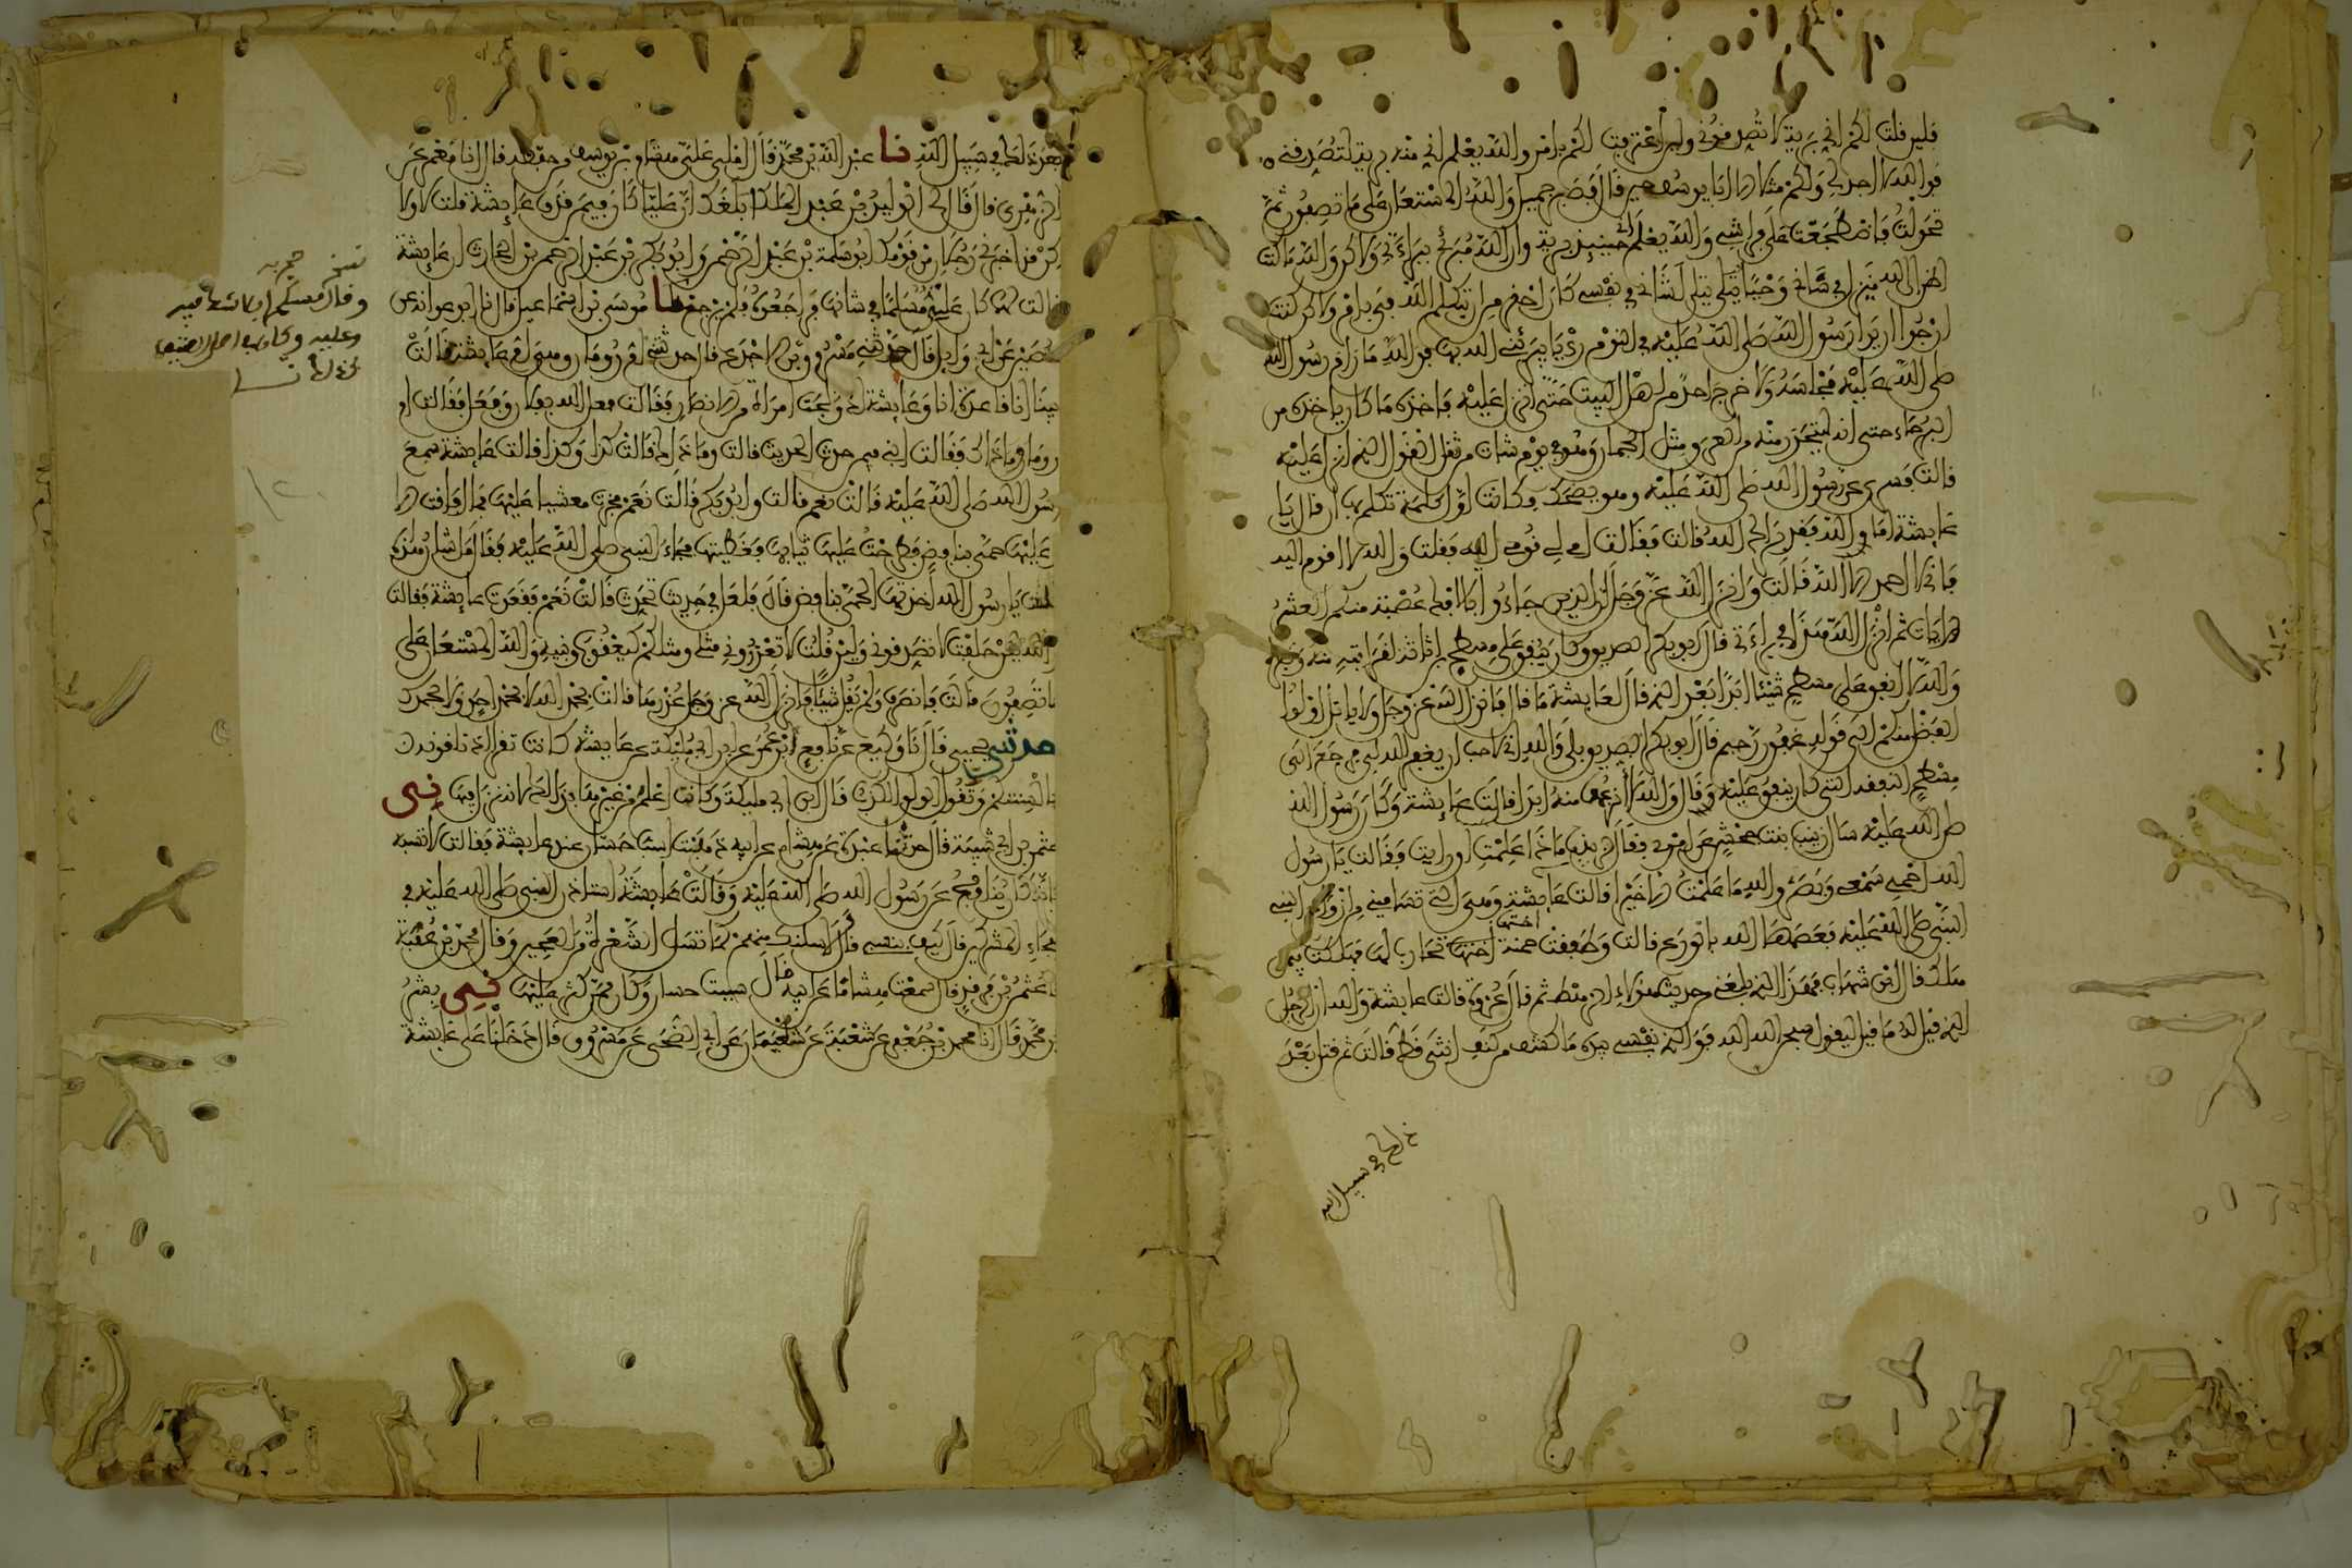 فلين قلت لكم اني برية لا تصدقوني ولين اعترفت لكم بامر والله يعلم اني منه برية لتصدقني
فوالله لا اجد لي ولكم مثلا الا ابا يوسف حين قال فصبر جميل والله المستعان على ما تصفون ثم
تحولت فاضطجعت على فراشي والله يعلم اني حينيذ برية وان الله مبرئي ببراءتي ولاكن والله ما كنت
اظن ان الله منزل في شاني وحيا يتلى لشاني في نفسي كان احقر من ان يتكلم الله في بامر ولاكن كنت
ارجوا ان يرا رسول الله صلى الله عليه في النوم رؤيا يبرئني الله بها فوالله ما رام رسول الله
صلى الله عليه مجلسه ولا خرج احد من اهل البيت حتى انزل عليه فاخذه ما كان ياخذه من
البرحاء حتى انه ليتحدر منه من العرق مثل الجمان وهو في يوم شات من ثقل القول الذي انزل عليه
قالت فسري عن رسول الله صلى الله عليه وهو يضحك فكانت اول كلمة تكلم بها ان قال يا
عايشة اما والله فقد براك الله قالت فقالت امي لي قومي اليه فقلت والله لا اقوم اليه
فاني لا احمد الا الله قالت وانزل الله عز وجل ان الذين جاءوا بالافك عصبة منكم العشر
الايات ثم انزل الله هذا في براءتي قال ابو بكر الصديق وكان ينفق على مسطح بن اثاثة لقرابته منه وفقره
والله لا انفق على مسطح شيئا ابدا بعد الذي قال لعايشة ما قال فانزل الله عز وجل ولا ياتل اولوا
الفضل منكم الى قوله غفور رحيم قال ابو بكر الصديق بلى والله اني لاحب ان يغفر الله لي فرجع الى
مسطح النفقة التي كان ينفق عليه وقال والله لا انزعها منه ابدا قالت عايشة وكان رسول الله
صلى الله عليه سال زينب بنت جحش عن امري فقال لزينب ماذا علمت او رايت فقالت يا رسول
الله احمي سمعي وبصري والله ما علمت الا خيرا قالت عايشة وهي التي تساميني من ازواج النبي
النبي صلى الله عليه فعصمها الله بالورع قالت وطفقت حمنة اختها تحارب لها فهلكت فيمن
هلك قال ابن شهاب فهذا الذي بلغني من حديث هؤلاء الرهط ثم قال عروة قالت عايشة والله ان الرجل
الذي قيل له ما قيل ليقول سبحن الله الله فوالذي نفسي بيده ما كشفت من كنف انثى قط قالت ثم قتل بعد
ذلك في سبيل الله
بعد ذلك في سبيل الله نا عبد الله بن محمد قال املى علي هشام بن يوسف من حفظه قال انا معمر عن
الزهري قال قال لي الوليد بن عبد الملك ابلغك ان عليا كان فيمن قذف عايشة قلت لا ولا
كن قد اخبرني رجلان من قومك ابو سلمة بن عبد الرحمن وابو بكر بن عبد الرحمن بن الحارث ان عايشة
قالت لهما كان علي مسلما في شانها فراجعوه فلم يرجع نا موسى بن اسمعيل قال نا ابو عوانة عن
حصين عن ابي وايل قال حدثني مسروق بن الاجدع قال حدثتني ام رومان وهي ام عايشة قالت
بينا انا قاعدة انا وعايشة اذ ولجت امراة من الانصار فقالت فعل الله بفلان وفعل فقالت ام
رومان وما ذاك فقالت ابني فيمن حدث الحديث قالت وما ذاك قالت كذا وكذا قالت عايشة سمع
رسول الله صلى الله عليه قالت نعم قالت وابو بكر قالت نعم فخرت مغشيا عليها فما افاقت الا
عليها حمى بنافض فطرحت عليها ثيابها وغطيتها فجاء النبي صلى الله عليه فقال ما شان هذه
قلت يا رسول الله اخذتها الحمى بنافض قال فلعل في حديث تحدث قالت نعم فقعدت عايشة فقالت
والله لين حلفت لا تصدقوني ولين قلت لا تعذروني مثلي ومثلكم كيعقوب وبنيه والله المستعان على
ما تصفون قالت فانصرف ولم يقل شيئا فانزل الله عز وجل عذرها قالت بحمد الله لا بحمد احد ولا بحمدك
حدثني يحيى قال نا وكيع عن نافع بن عمر عن ابن ابي مليكة عن عايشة كانت تقرا اذ تلقونه
بالسنتكم وتقول الولق الكذب قال ابن ابي مليكة وكانت اعلم من غيرها بذلك لانه نزل فيها ني
عثمن بن ابي شيبة قال حدثنا عبدة عن هشام عن ابيه ذهبت اسب حسان عند عايشة فقالت لا تسبه
فانه كان ينافح عن رسول الله صلى الله عليه وقالت عايشة استاذن النبي صلى الله عليه في
هجاء المشركين قال كيف بنسبي قال لاسلنك منهم كما تسل الشعرة من العجين وقال محمد بن عقبة
نا عثمن بن فرقد قال سمعت هشاما عن ابيه قال سببت حسان وكان ممن كثر عليها ني بشر
بن محمد قال انا محمد بن جعفر عن شعبة عن سليمان عن ابي الضحى عن مسروق قال دخلنا على عايشة